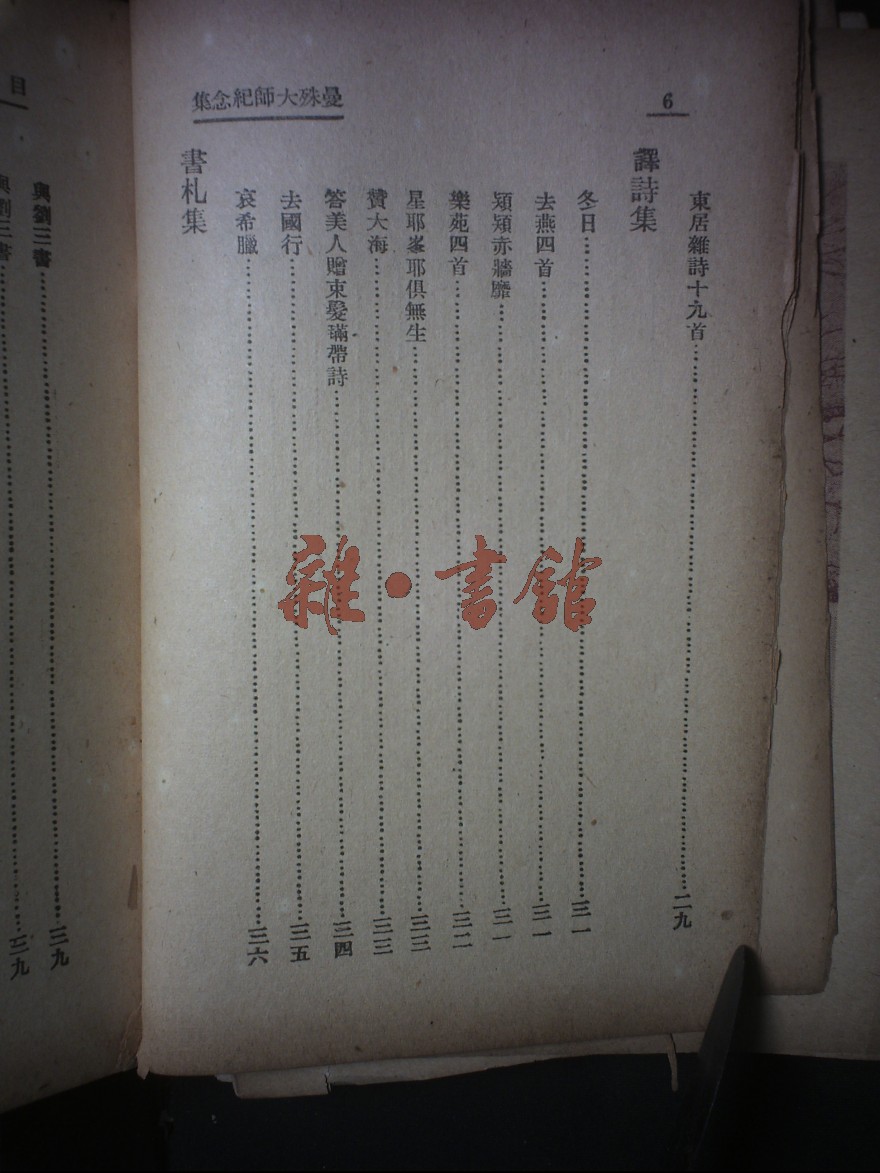 6
曼殊大師紀念集
東居雜詩十九首 二九
譯詩集
冬日 三一
去燕四首 三一
熲熲赤牆靡 三一
樂苑四首 三二
星耶峯耶俱無生 三三
贊大海 三三
答美人贈束髮㻞帶詩 三四
去國行 三五
哀希臘 三六
書札集
目
與劉三書 三九
與劉三書 三九
雜·書館